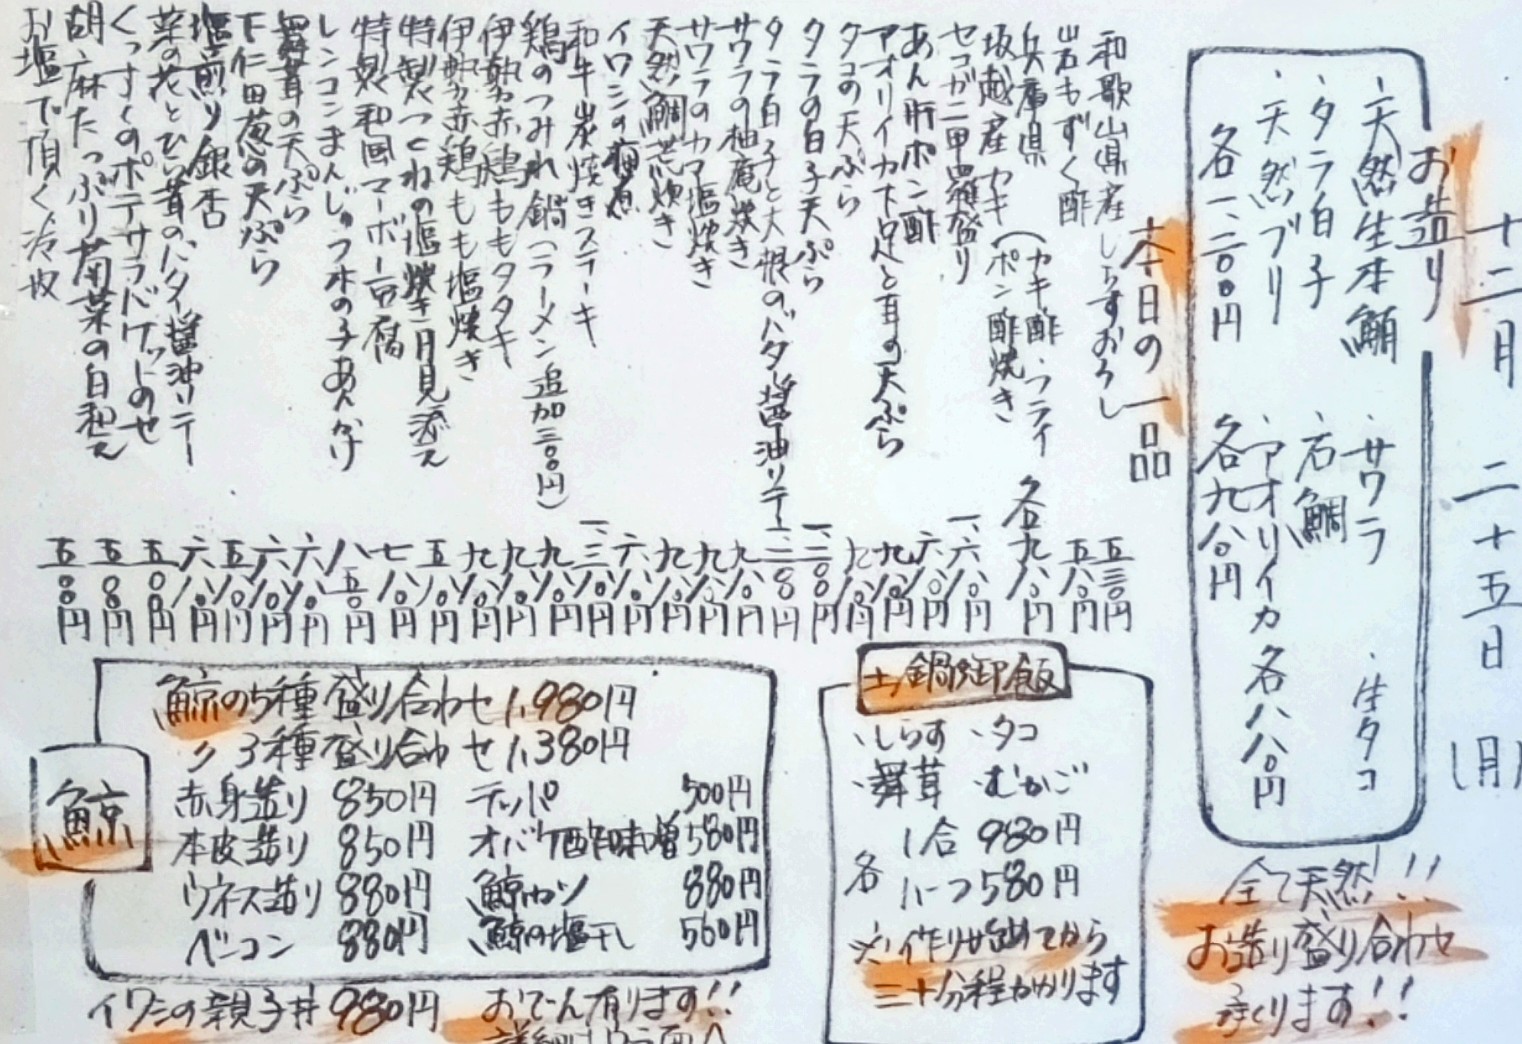 十二月 二十五日 (月)
お造り
・天然生本鮪 ・サワラ ・生タコ
・タラ白子 ・石鯛
・天然ブリ ・アオリイカ 各八八〇円
各一、二〇〇円 各九八〇円
全て天然!!
お造り盛り合わせ
承ります!!
本日の一品
和歌山県産しらすおろし 五三〇円
岩もずく酢 五八〇円
兵庫県
坂越産カキ(カキ酢・フライ
ポン酢焼き 各九八〇円
セコガニ甲羅盛り 一、六八〇円
あん肝ポン酢 六八〇円
アオリイカ下足と耳の天ぷら 九八〇円
タコの天ぷら 九八〇円
タラの白子天ぷら 一、二〇〇円
タラ白子と大根のバター醤油ソテー 一、二〇〇円
サワラの柚庵焼き 九八〇円
サワラのカマ塩焼き 九八〇円
天然鯛荒炊き 九八〇円
イワシの梅煮 六八〇円
和牛炭焼きステーキ 一、三八〇円
鶏のつみれ鍋(ラーメン追加三〇〇円) 九八〇円
伊勢赤鶏ももタタキ 九八〇円
伊勢赤鶏もも塩焼き 九八〇円
特製つくねの塩焼き月見添え 五八〇円
特製和風マーボー豆腐 七八〇円
レンコンまんじゅう木の子あんかけ 八五〇円
舞茸の天ぷら 六八〇円
下仁田葱の天ぷら 六八〇円
塩煎り銀杏 五八〇円
菜の花とひら茸のバター醤油ソテー 六八〇円
くっすくのポテサラバゲットのせ 五〇〇円
胡麻たっぷり菊菜の白和え 五〇〇円
お塩で頂く冷奴 五〇〇円
鯨
鯨の5種盛り合わせ 1,980円
〃 3種盛り合わせ 1,380円
赤身造り 850円 テッパ 500円
本皮造り 850円 オバケ酢味噌 580円
ウネス造り 880円 鯨カツ 880円
ベーコン 880円 鯨の塩干し 560円
イワシの親子丼 980円 おでん有ります!!
詳細はウラ面へ
土鍋御飯
・しらす ・タコ
・舞茸 ・むかご
各 1合 980円
ハーフ 580円
※作り始めてから
三十分程かかります